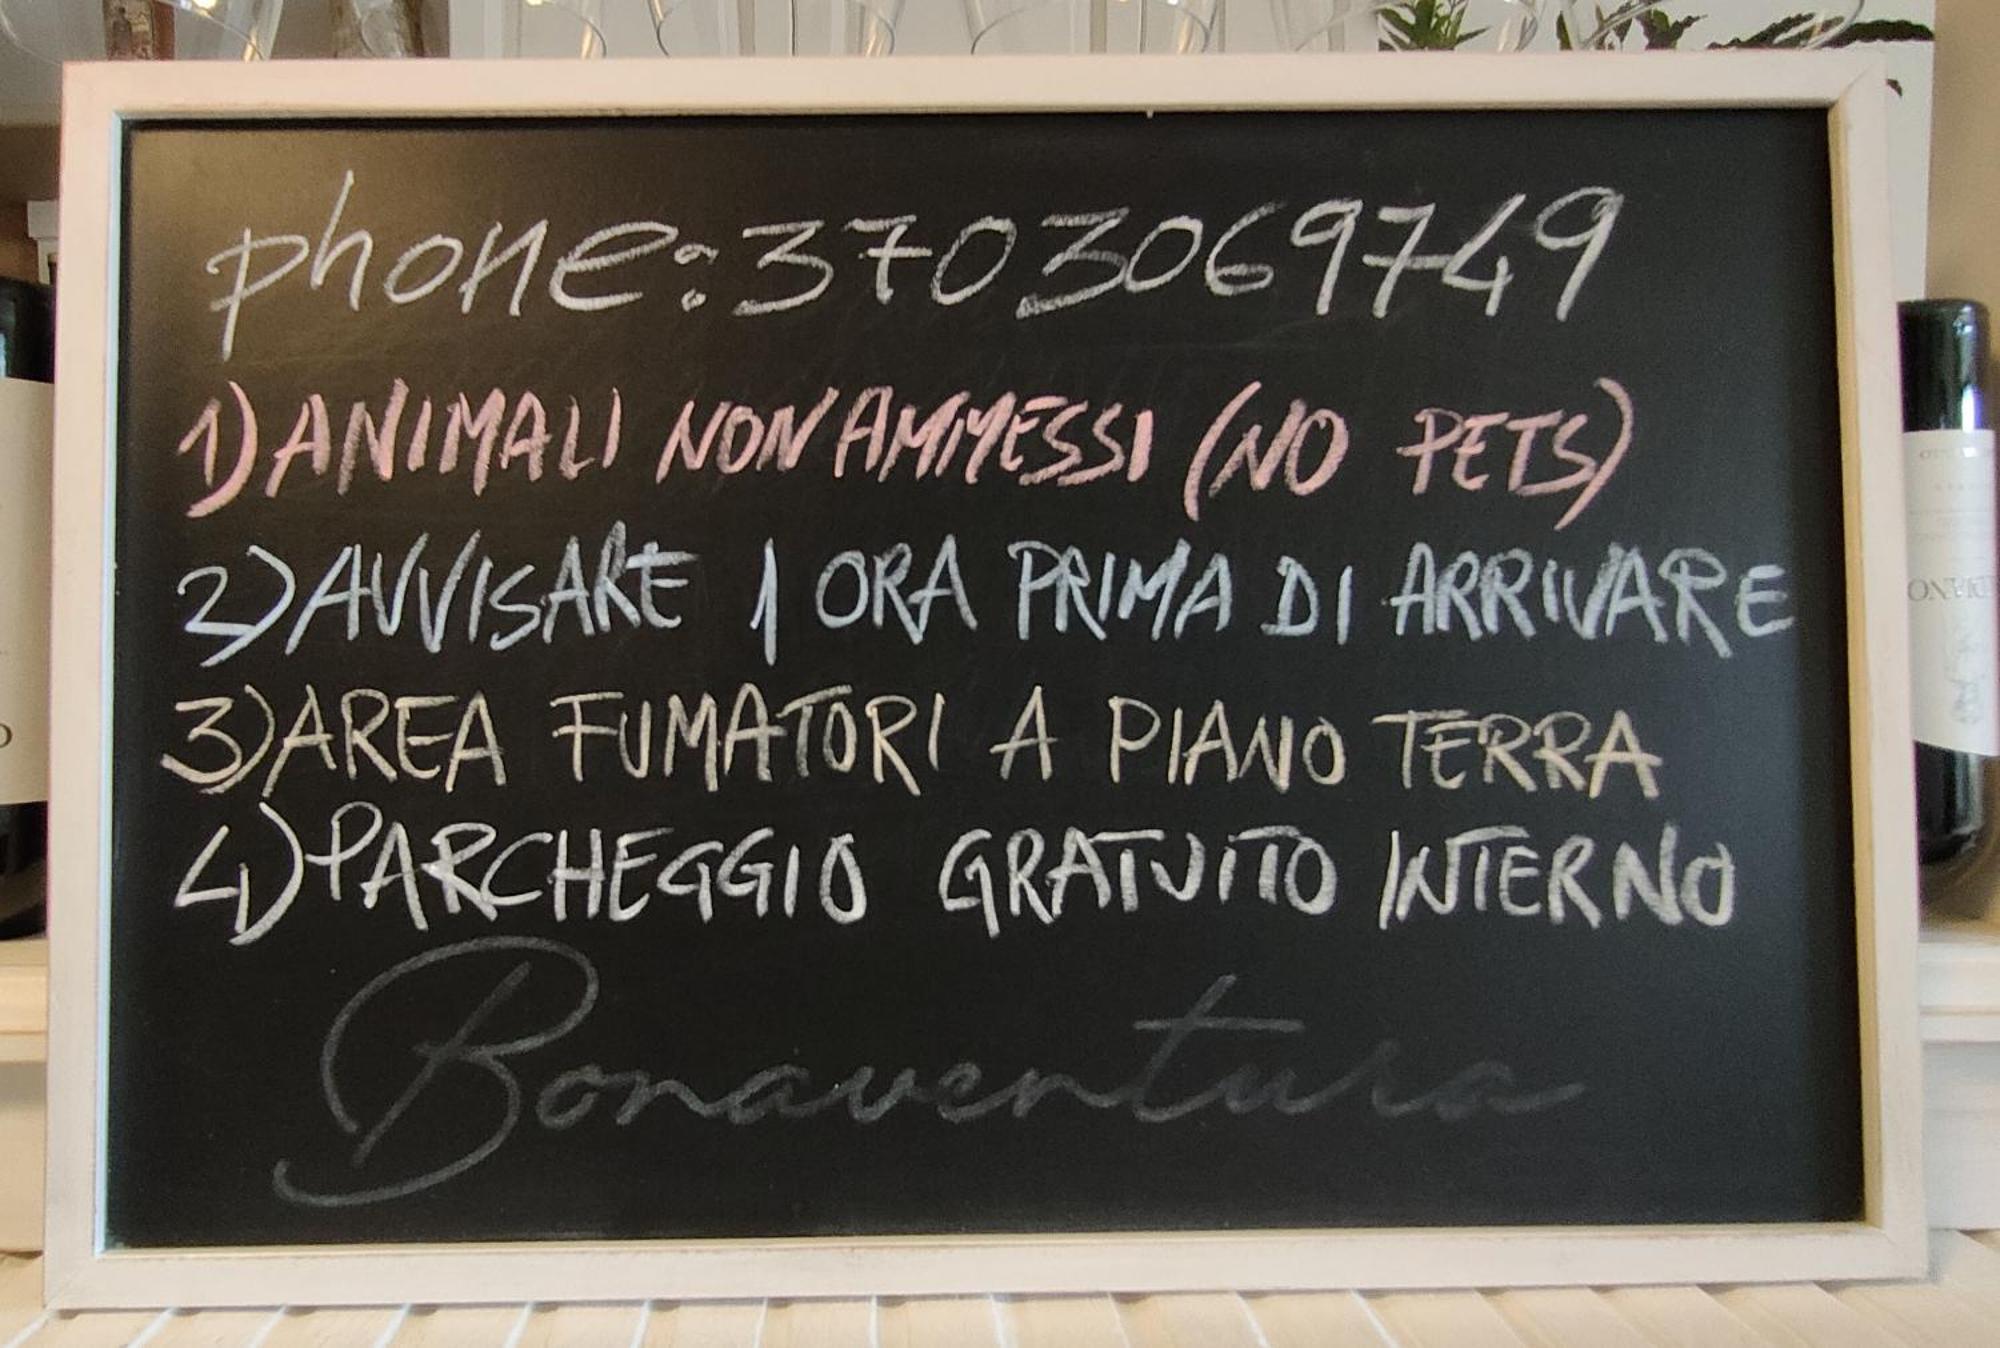 phone: 3703069749
1) ANIMALI NON AMMESSI (NO PETS)
2) AVVISARE 1 ORA PRIMA DI ARRIVARE
3) AREA FUMATORI A PIANO TERRA
4) PARCHEGGIO GRATUITO INTERNO
Bonaventura